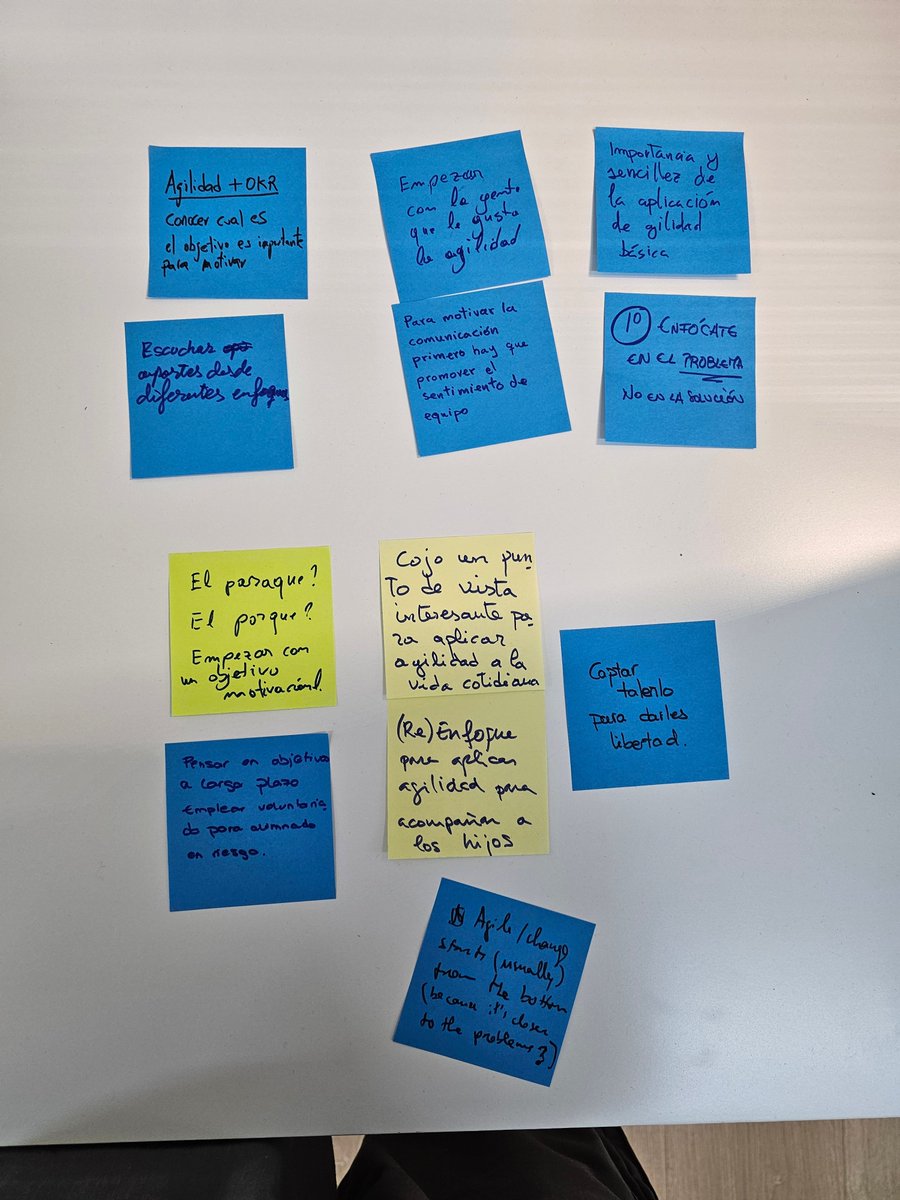 Agilidad + OKR
Conocer cual es
el objetivo es importante
para motivar
Empezar
con la gente
que le gusta
la agilidad
Importancia y
sencillez de
la aplicación
de gilidad
básica
Escuchar
aportes desde
diferentes enfoques
Para motivar la
comunicación
primero hay que
promover el
sentimiento de
equipo
1º ENFÓCATE
EN EL PROBLEMA
NO EN LA SOLUCIÓN
El paraque?
El porque?
Empezar con
un objetivo
motivacional.
Cojo un pun-
to de vista
interesante pa-
ra aplicar
agilidad a la
vida cotidiana
Captar
talento
para darles
libertad.
Pensar en objetivos
a largo plazo
Emplear voluntaria
do para alumnado
en riesgo.
(Re) Enfoque
para aplicar
agilidad para
acompañar a
los hijos
Agile/change
starts (usually)
from the bottom
(because it's closer
to the problems)